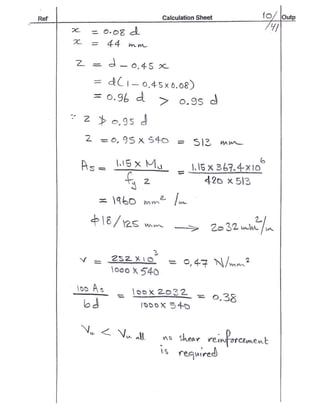 Ref Calculation Sheet 10/41 Outp
x = 0.08 d
x = 44 mm
Z = d - 0.45 x
= d(1 - 0.45 x 0.08)
= 0.96 d > 0.95 d
∵ Z ≯ 0.95 d
Z = 0.95 x 540 = 513 mm
As = 1.15 x Mu / fy z = 1.15 x 367.4 x 10^6 / 420 x 513
= 1960 mm² /m
ϕ18/125 mm → 2032 mm²/m
v = 252 x 10^3 / 1000 x 540 = 0.47 N/mm²
100 As / bd = 100 x 2032 / 1000 x 540 = 0.38
Vu < Vu all no shear reinforcement
is required